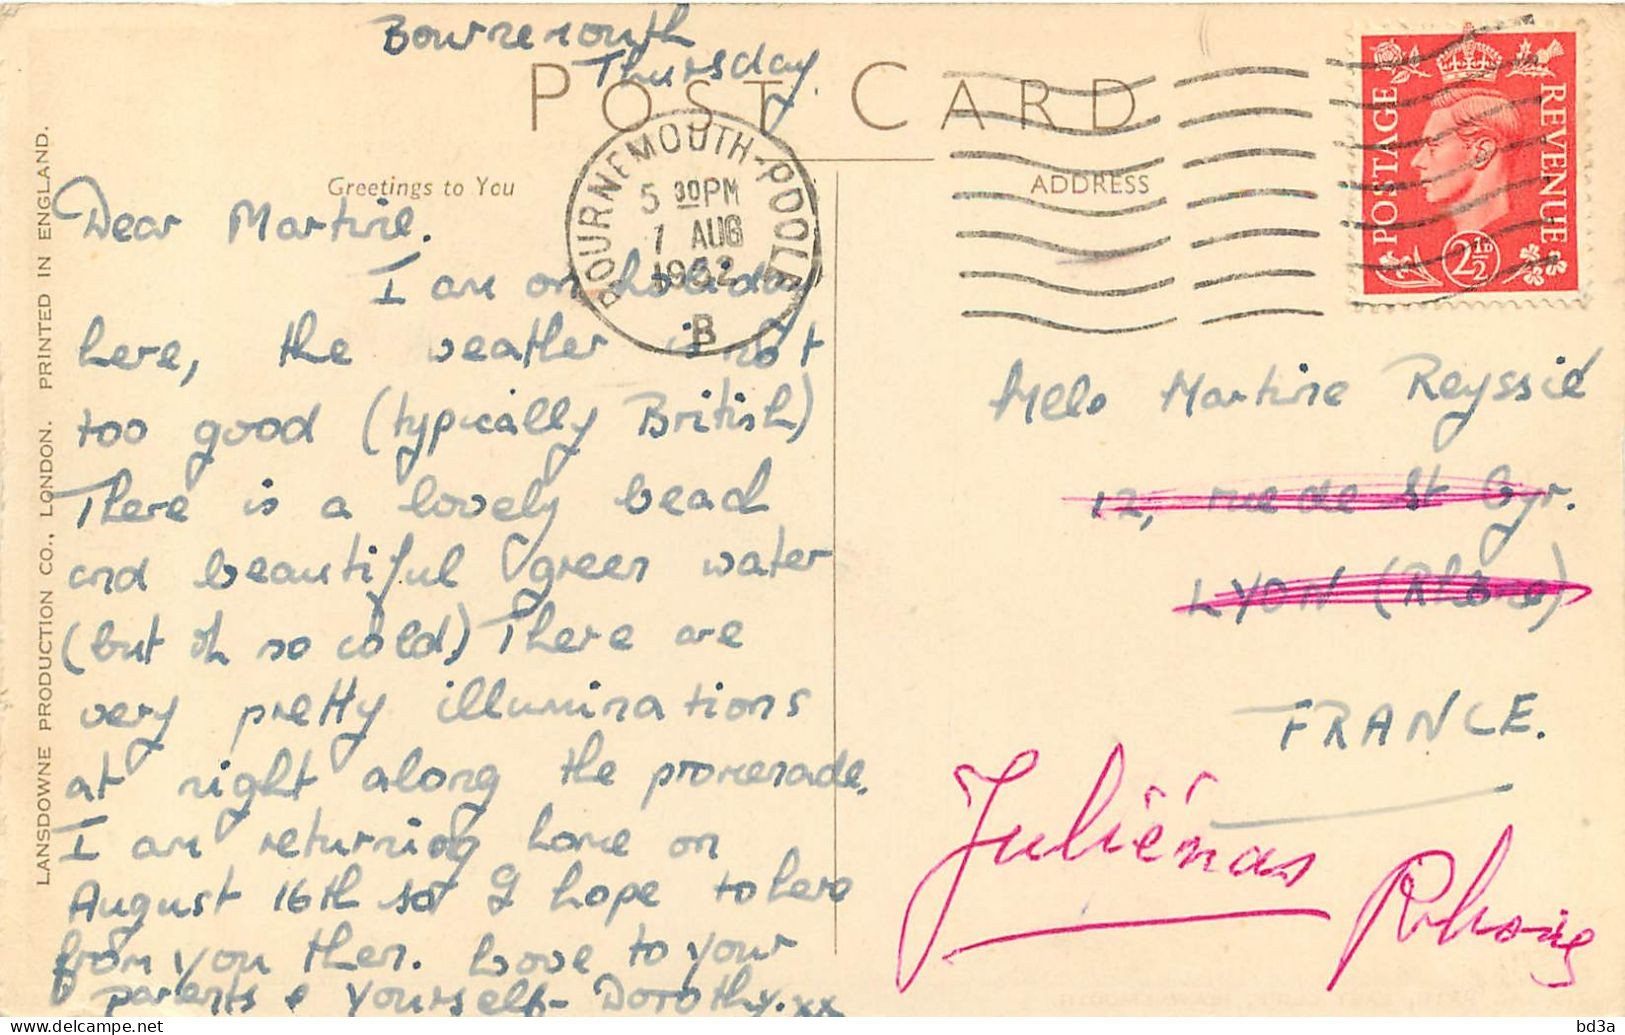 Bournemouth
Thursday.
POST CARD
Greetings to You
ADDRESS
BOURNEMOUTH-POOLE
5 30PM
7 AUG
1952
B
POSTAGE
REVENUE
2½D
Dear Martine.
I am on holiday
here, the weather is not
too good (typically British)
There is a lovely beach
and beautiful green water
(but oh so cold) There are
very pretty illuminations
at night along the promenade.
I am returning home on
August 16th so I hope to here
from you then. Love to your
parents & yourself - Dorothy. xx
Melle Martine Reyssié
12, rue de St Cyr.
LYON (Rhône)
FRANCE.
Juliénas
Rhône
LANSDOWNE PRODUCTION CO., LONDON. PRINTED IN ENGLAND.
bd3a